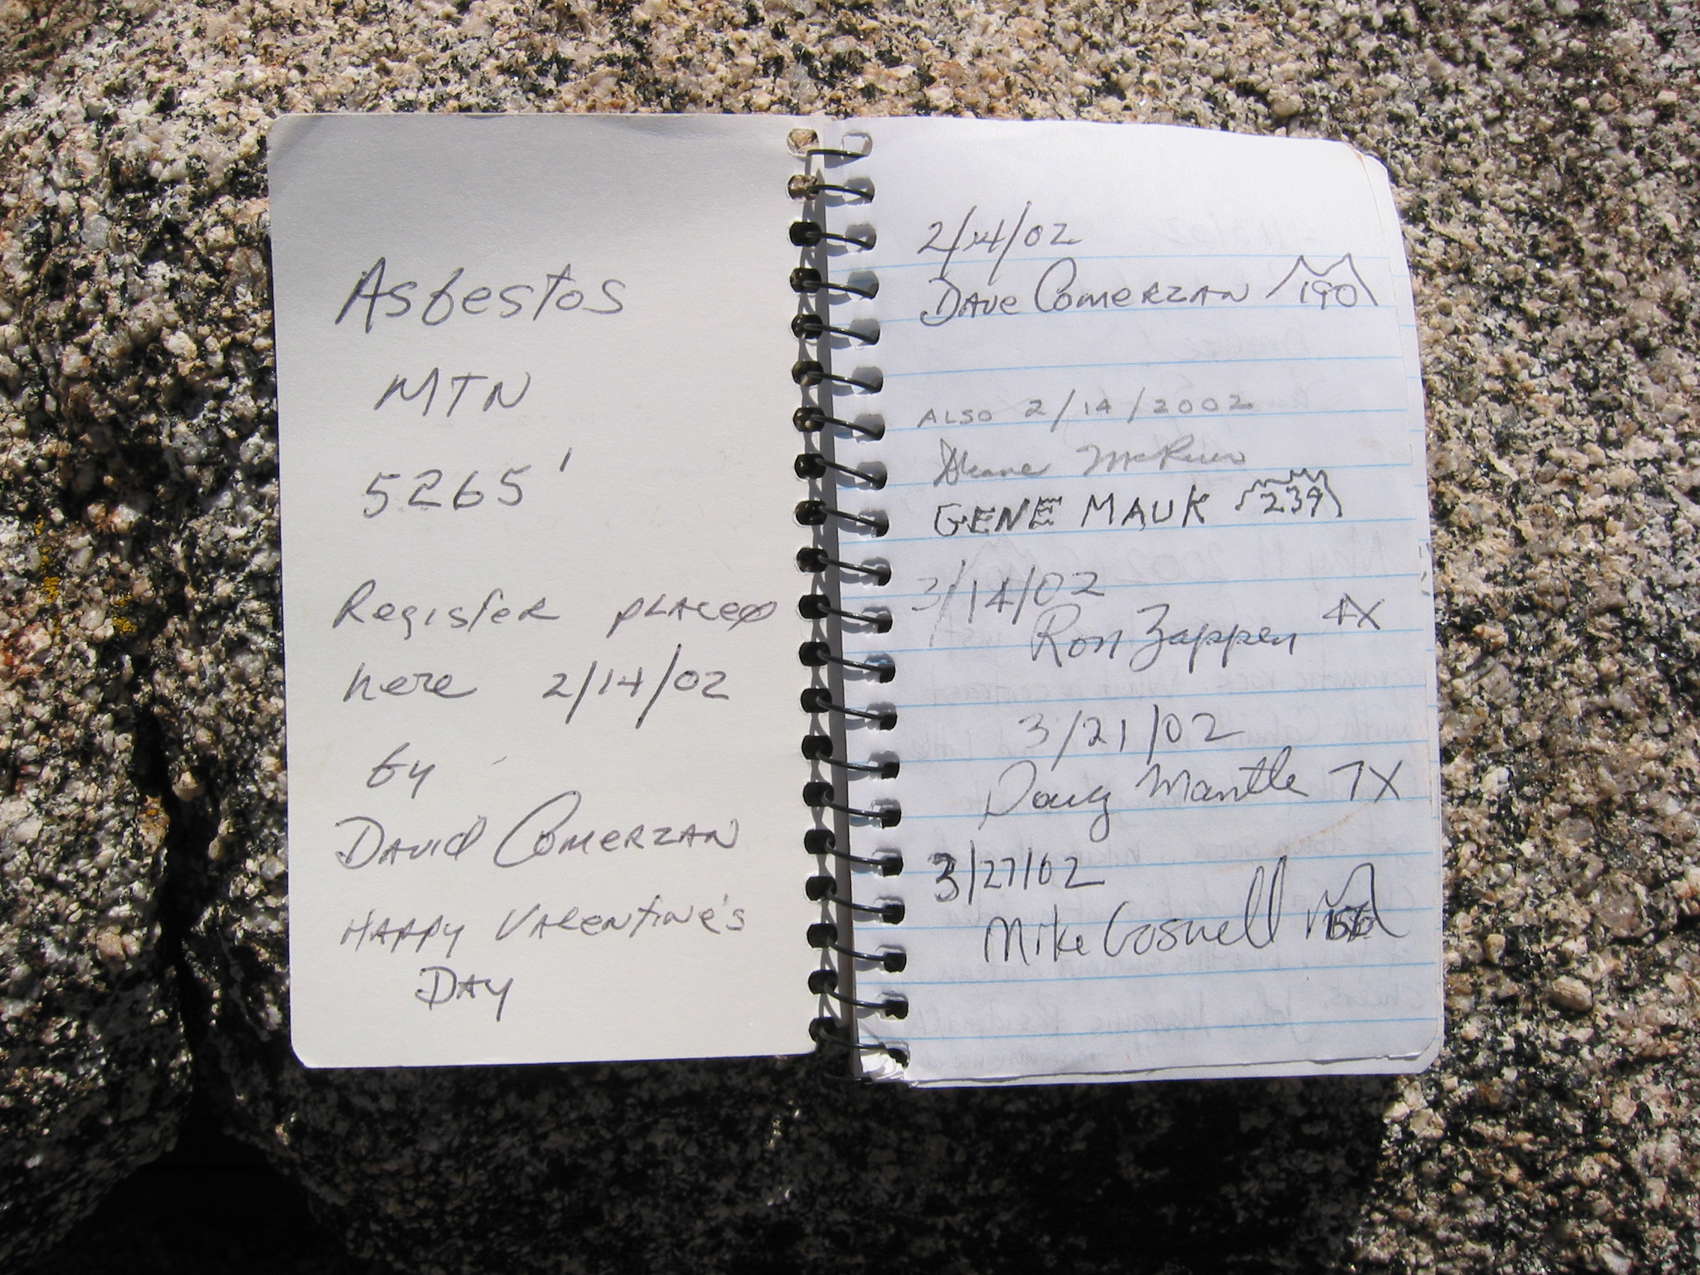 Asbestos
MTN
5265'
Register placed
here 2/14/02
by
David Comerzan
Happy Valentine's
Day
2/14/02
Dave Comerzan 190
ALSO 2/14/2002
GENE MAUK 239
3/14/02
Ron Zappen 4X
3/21/02
Doug Mantle 7X
3/27/02
Mike Gosnell